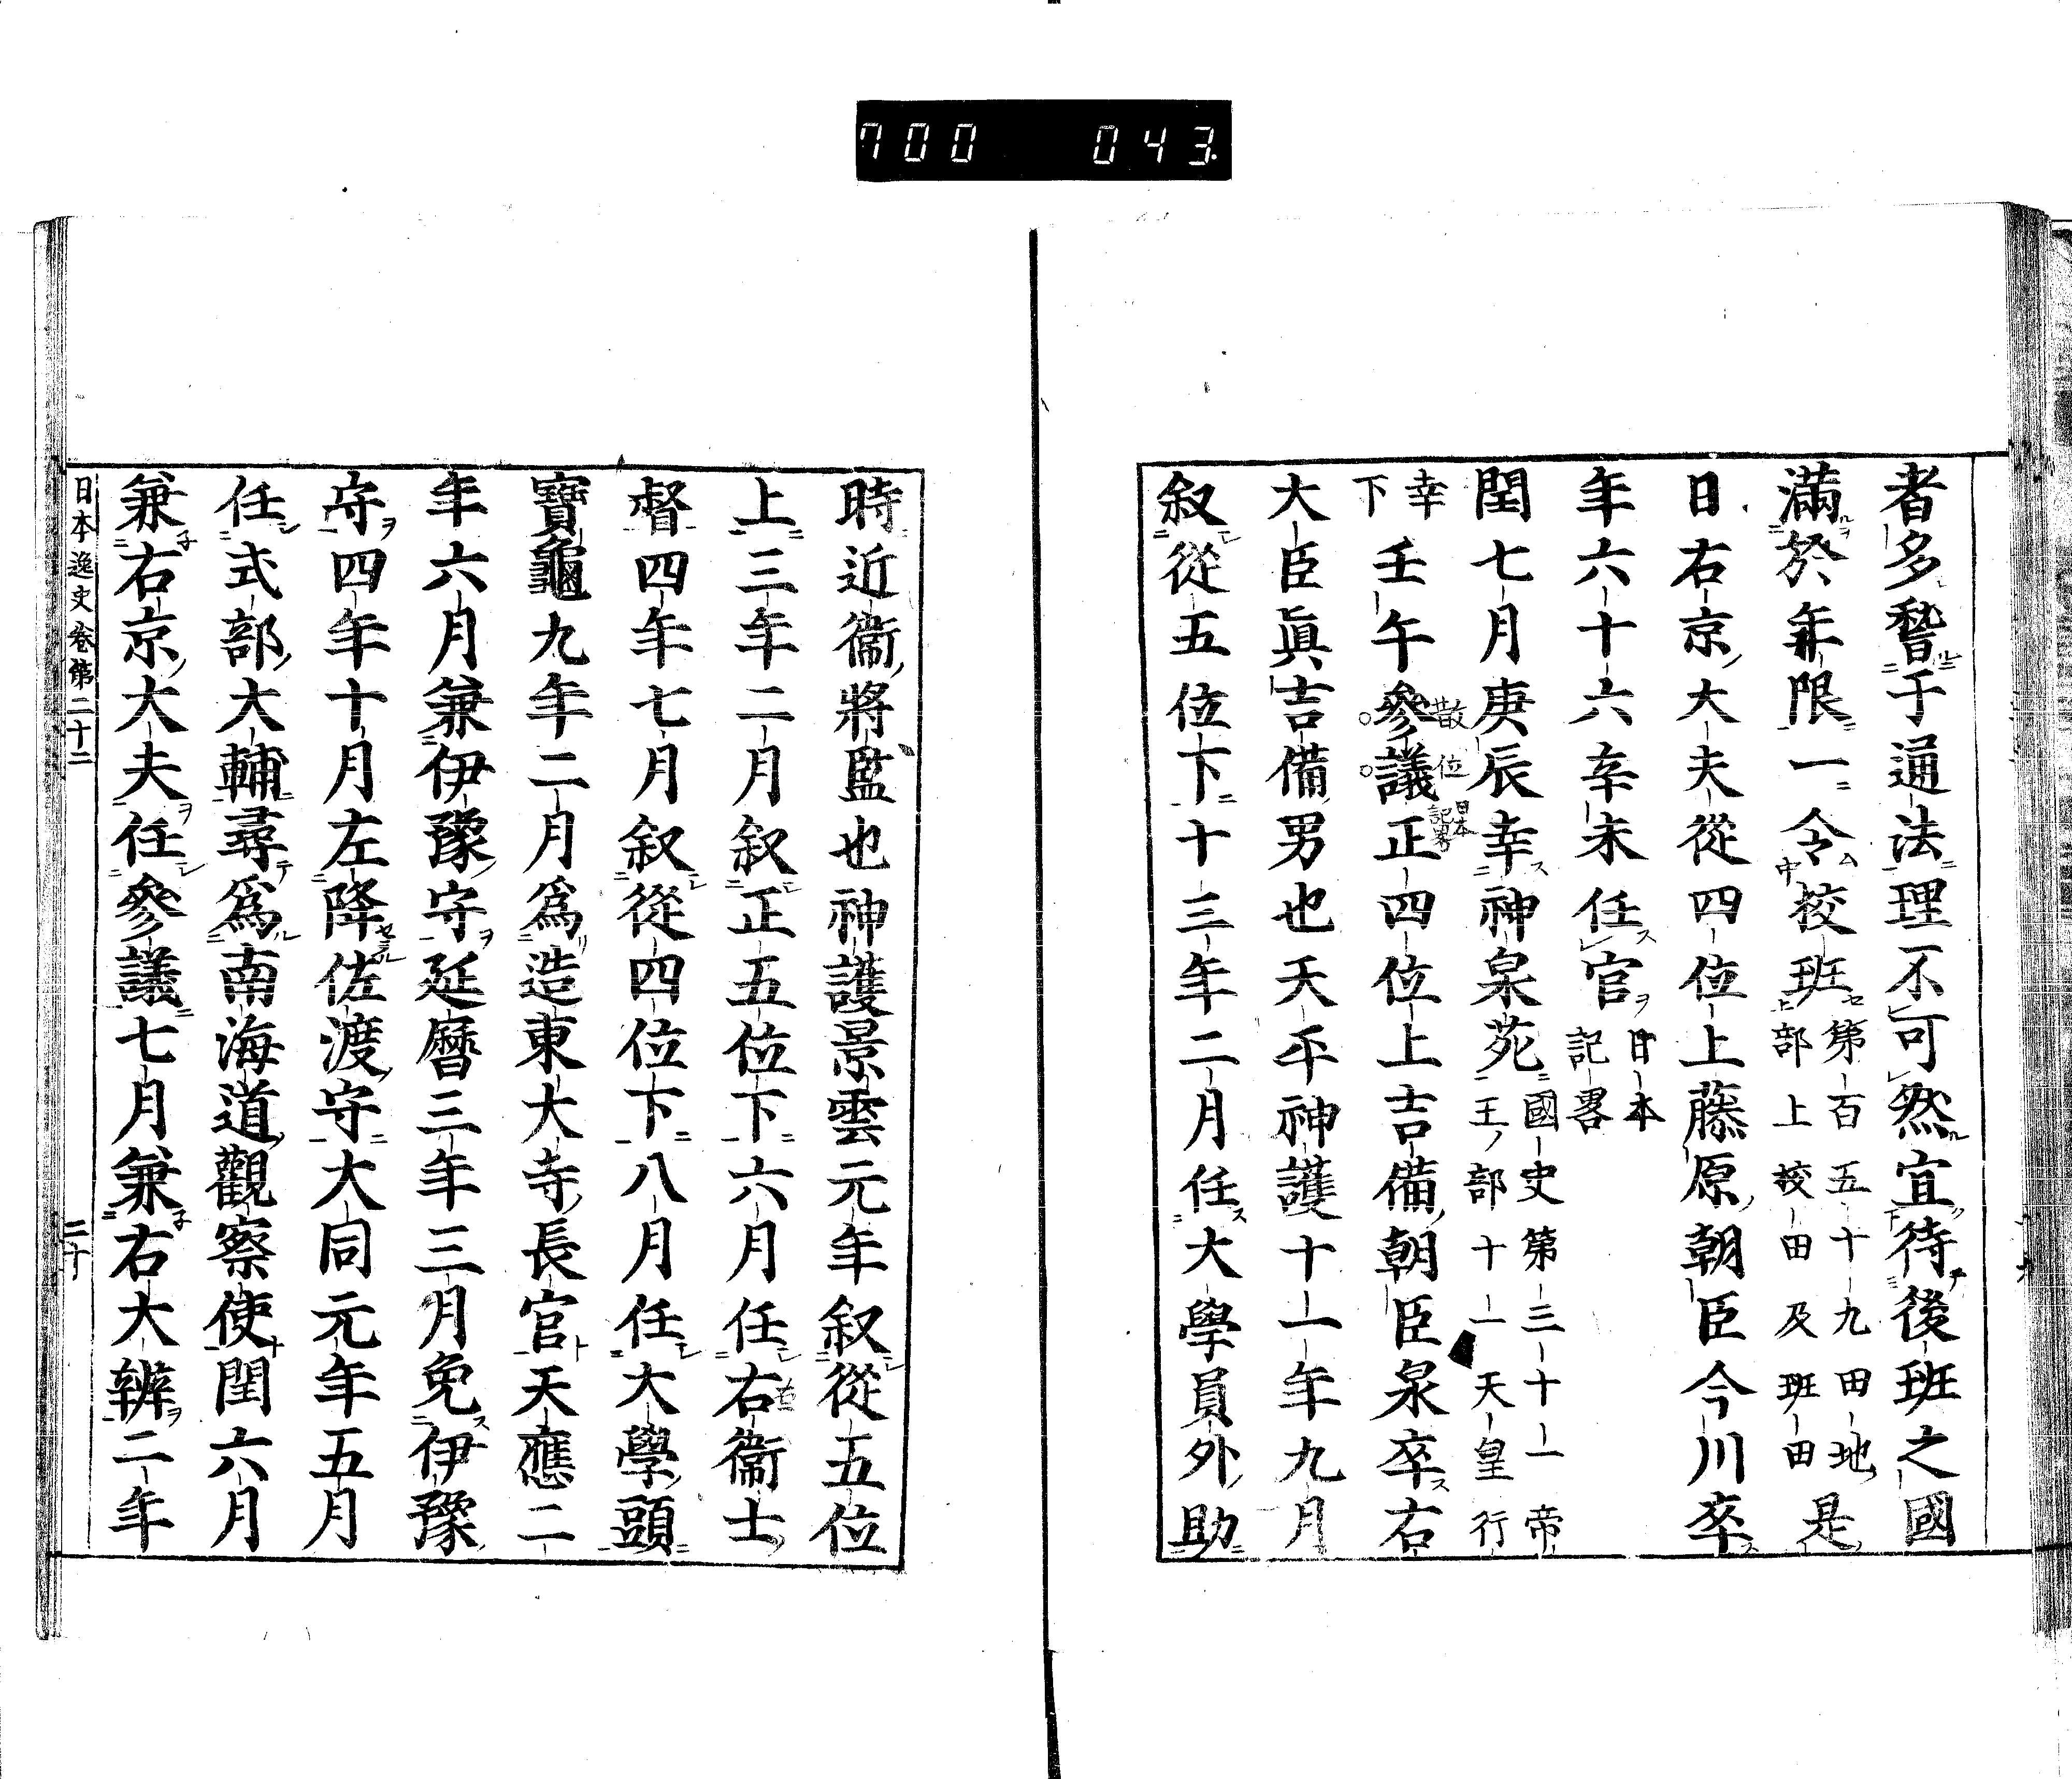 700 043
者多誓于通法理不可然宜待後班之國
滿於年限一令校班第百五十九田地部上校田及班田是
日右京大夫從四位上藤原朝臣今川卒
年六十六辛未任官日本記畧
閏七月庚辰幸神泉苑國史第三十一帝王部十一天皇行
幸下壬午參議正四位上吉備朝臣泉卒右
散位日本記畧
大臣眞吉備男也天平神護十一年九月
叙從五位下十三年二月任大學員外助
時近衞將監也神護景雲元年叙從五位
上三年二月叙正五位下六月任右衞士
督四年七月叙從四位下八月任大學頭
寶龜九年二月爲造東大寺長官天應二
年六月兼伊豫守延曆三年三月免伊豫
守四年十月左降佐渡守大同元年五月
任式部大輔尋爲南海道觀察使閏六月
兼右京大夫任參議七月兼右大辨二年
日本逸史卷第二十二 二十